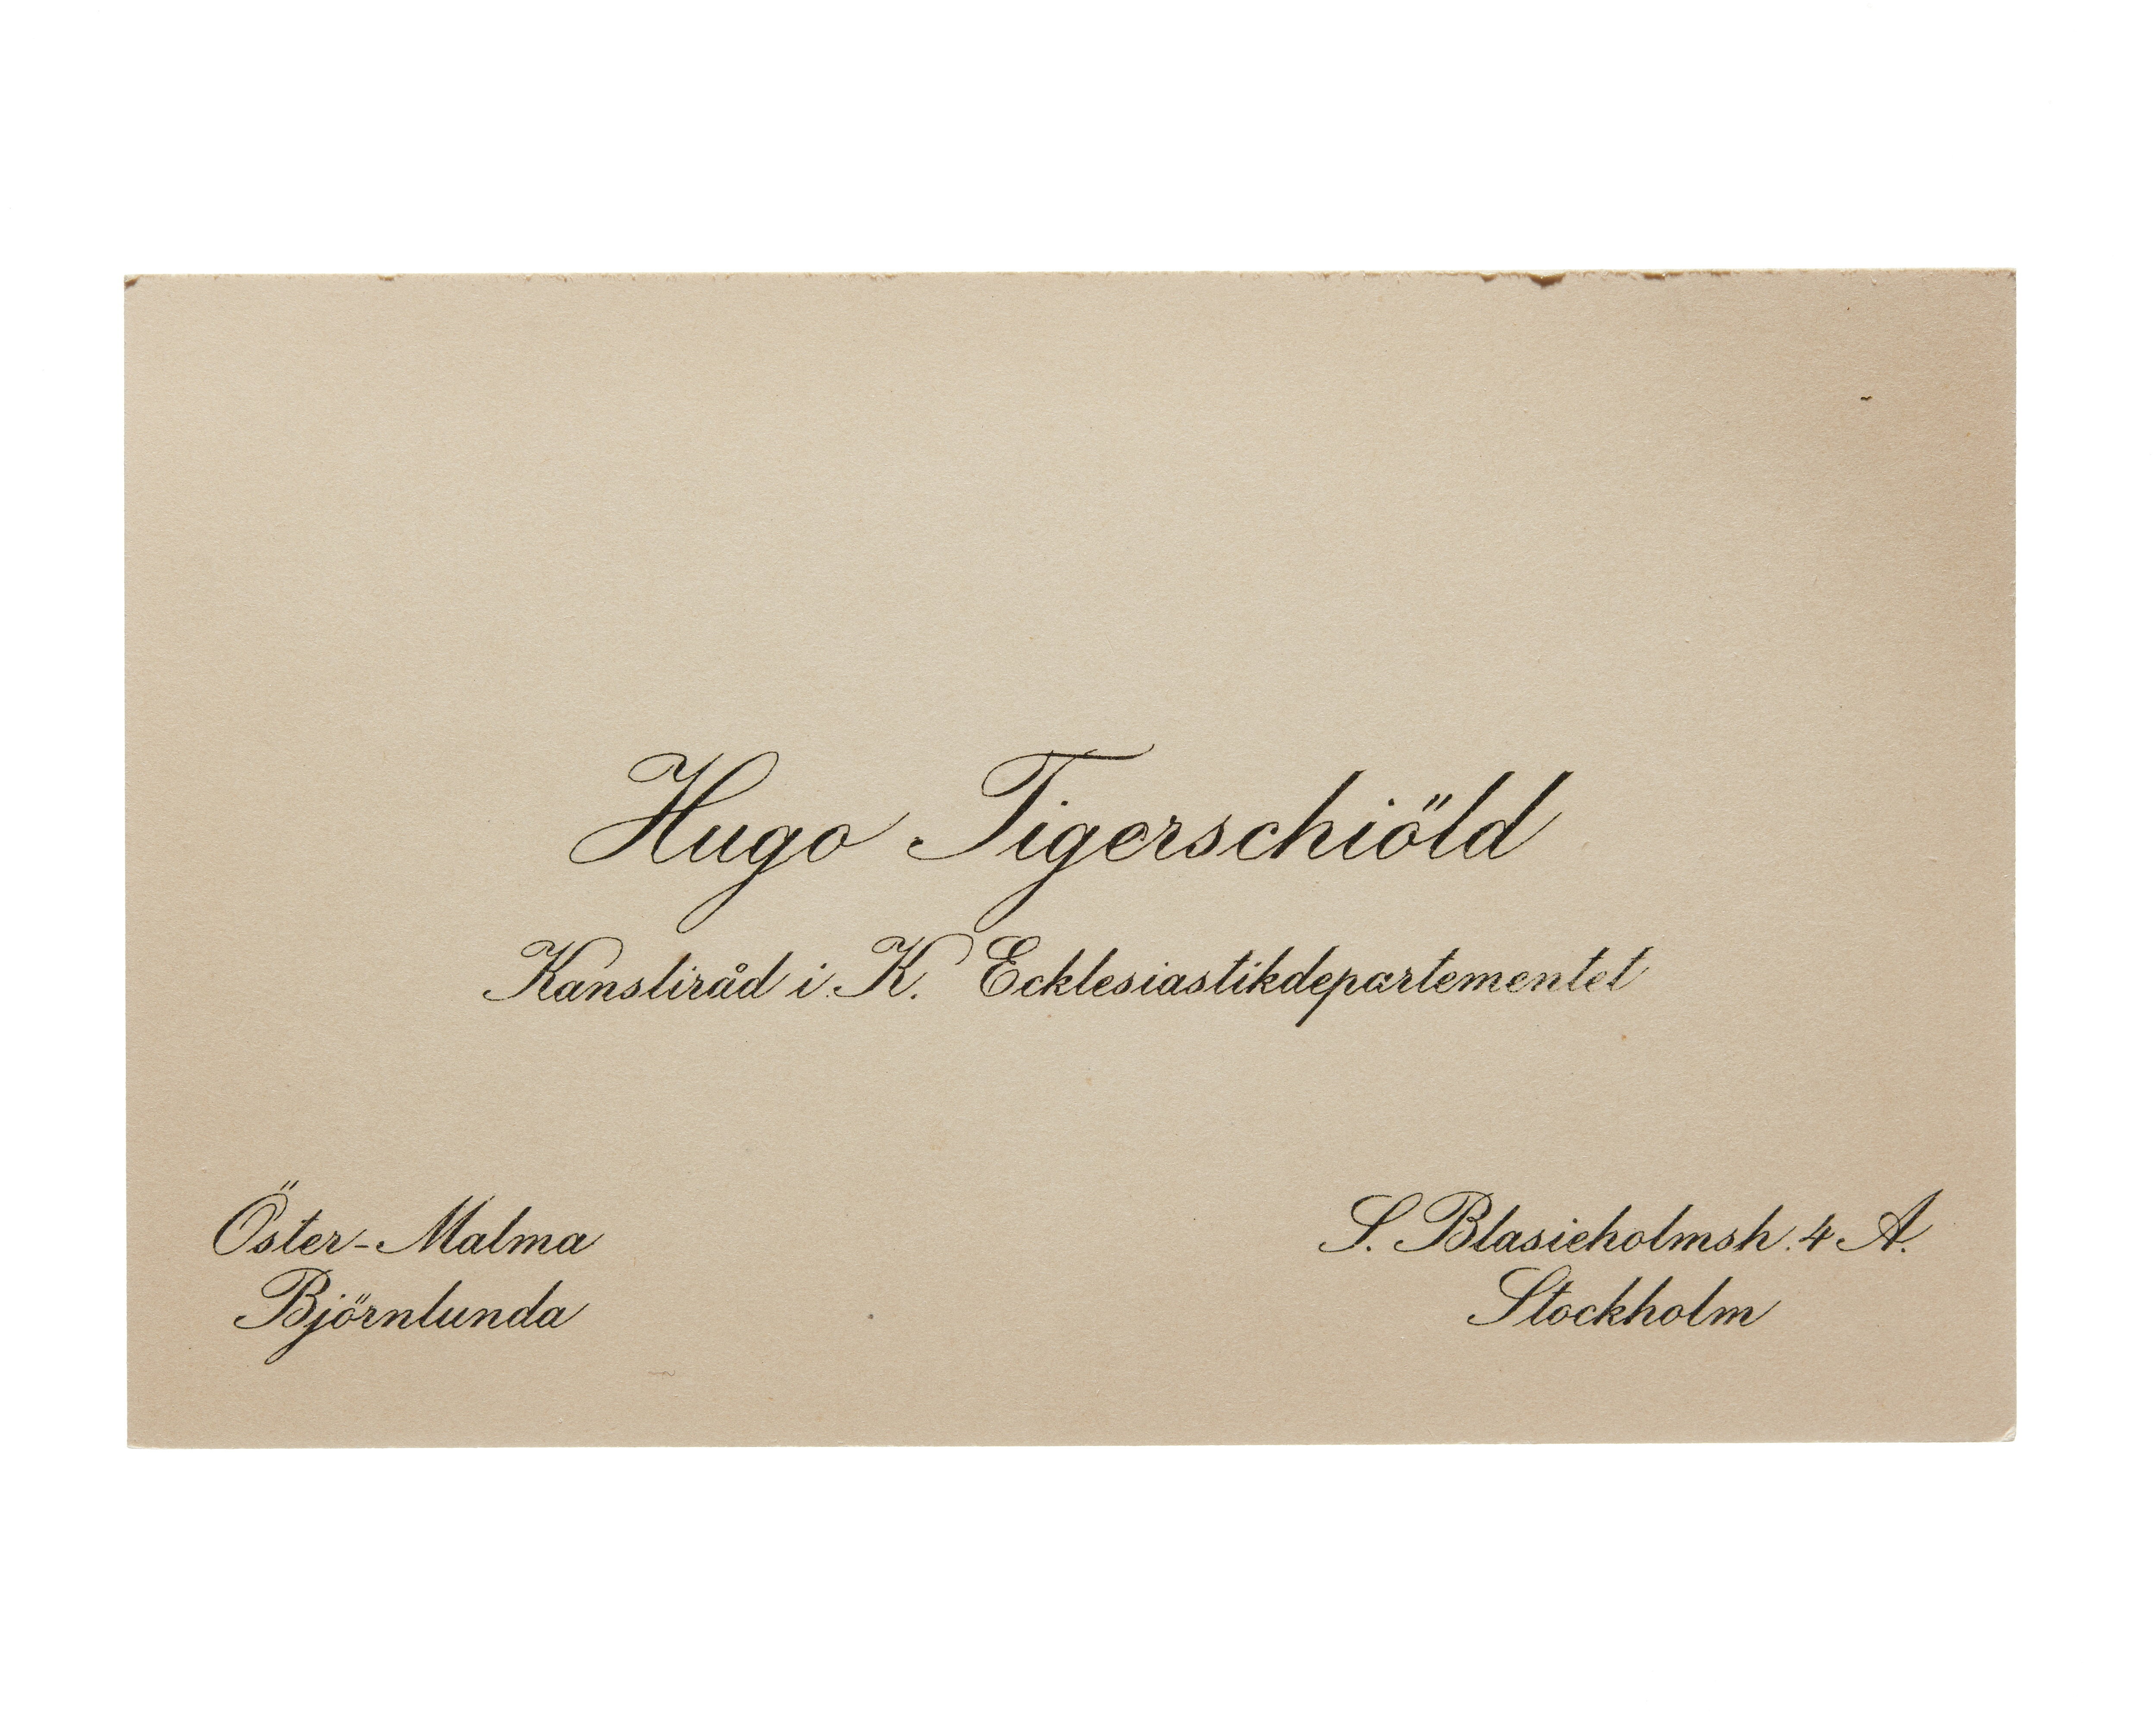 Hugo Tigerschiöld
Kansliråd i K. Ecklesiastikdepartementet
Öster-Malma
Björnlunda
S. Blasieholmsh. 4 A.
Stockholm